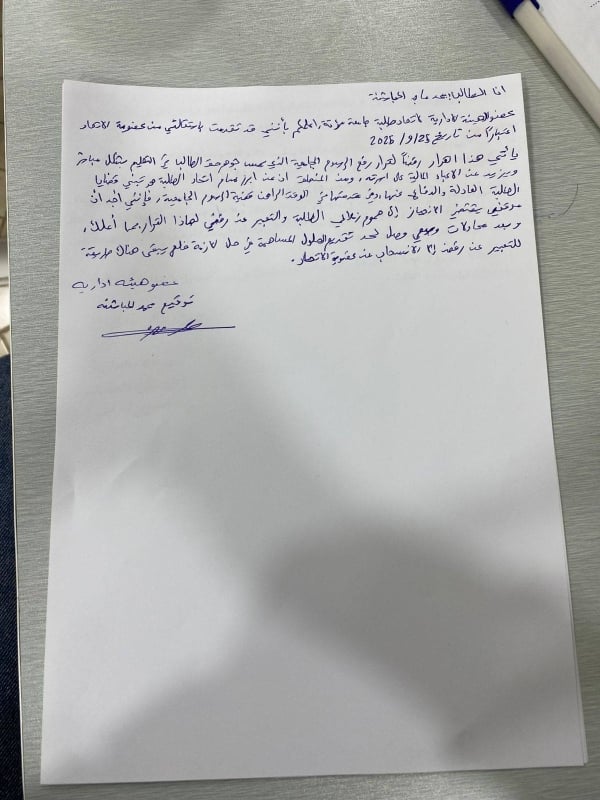 انا الطالب: محمد ماجد المباشنة
عضو الهيئة الادارية باتحاد طلبة جامعة مؤتة، اعلمكم بأنني قد تقدمت باستقالتي من عضوية الاتحاد
اعتباراً من تاريخ 25/9/2025
يأتي هذا القرار رفضاً لقرار رفع الرسوم الجامعية الذي يمس جوهر حق الطالب في التعليم بشكل مباشر
ويزيد من الأعباء المالية على أسرته، ومن المنطلق ان من ابرز مهام اتحاد الطلبة هو تبني قضايا
الطلبة العادلة والدفاع عنها، وفي مقدمتها في الوقت الراهن قضية الرسوم الجامعية، فإنني أجد أن
موقفي يقتضي الانحياز إلى هموم زملائي الطلبة والتعبير عن رفضي لهذا القرار بما أملك،
وبعد محاولات وصل لحد تقديم الحلول للمساهمة في حل الازمة فلم يبقى هناك طريقة
للتعبير عن رفضنا إلا الانسحاب من عضوية الاتحاد.
عضو هيئة ادارية
توقيع محمد المباشنه